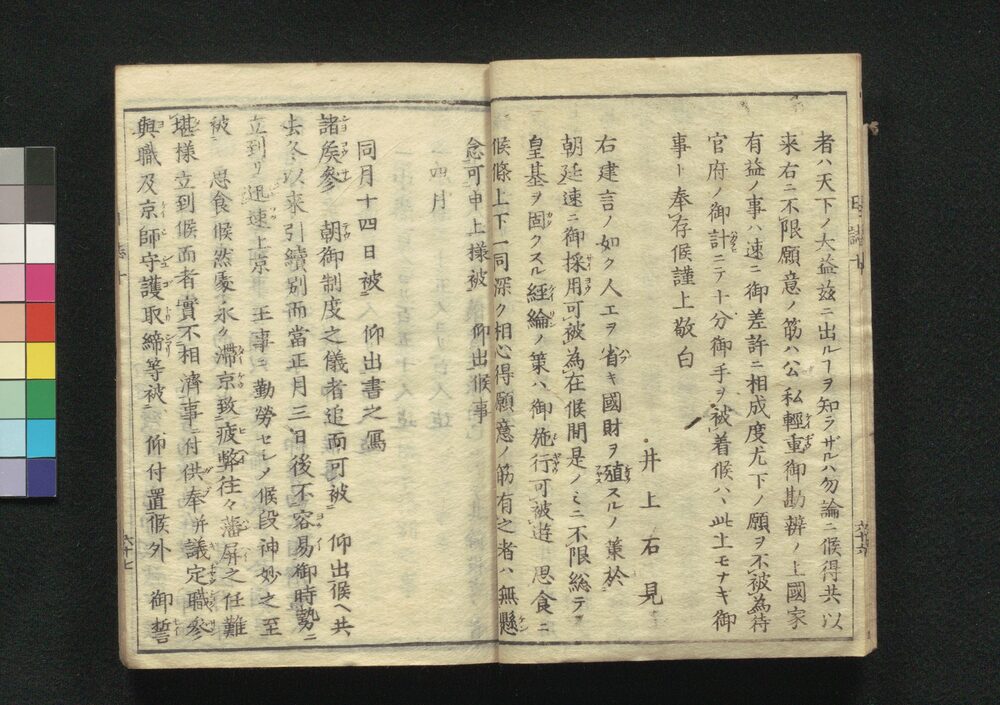 者ハ天下ノ大益茲ニ出ルーヲ知ラザルハ勿論ニ候得共以
来右ニ不限願意ノ筋ハ公私輕重御勘辨ノ上國家
有益ノ事ハ速ニ御差許ニ相成度尤下ノ願ヲ不被為待
官府ノ御計ニテ十分御手ヲ被着候ハヽ此上モナキ御
事ト奉存候謹上敬白
井上石見
右建言ノ如ク人工ヲ省キ國財ヲ殖スルノ策於
朝廷速ニ御採用可被為在候間是ノミニ不限総テ
皇基ヲ固クスル經綸ノ策ハ御施行可被遊思食ニ
候條上下一同深ク相心得願意ノ筋有之者ハ無懸
念可申上様被仰出候事
四月
同月十四日被仰出書之寫
諸矦參朝御制度之儀者追而可被仰出候ヘ共
去冬以来引續別而當正月三日後不容易御時勢ニ
立到リ迅速上京王事ニ勤勞セシメ候段神妙之至
被思食候然處永々滞京致疲弊往々藩屏之任難
堪様立到候而者實不相濟事ニ付供奉并議定職參
與職及京師守護取締等被仰付置候外御誓
六十七